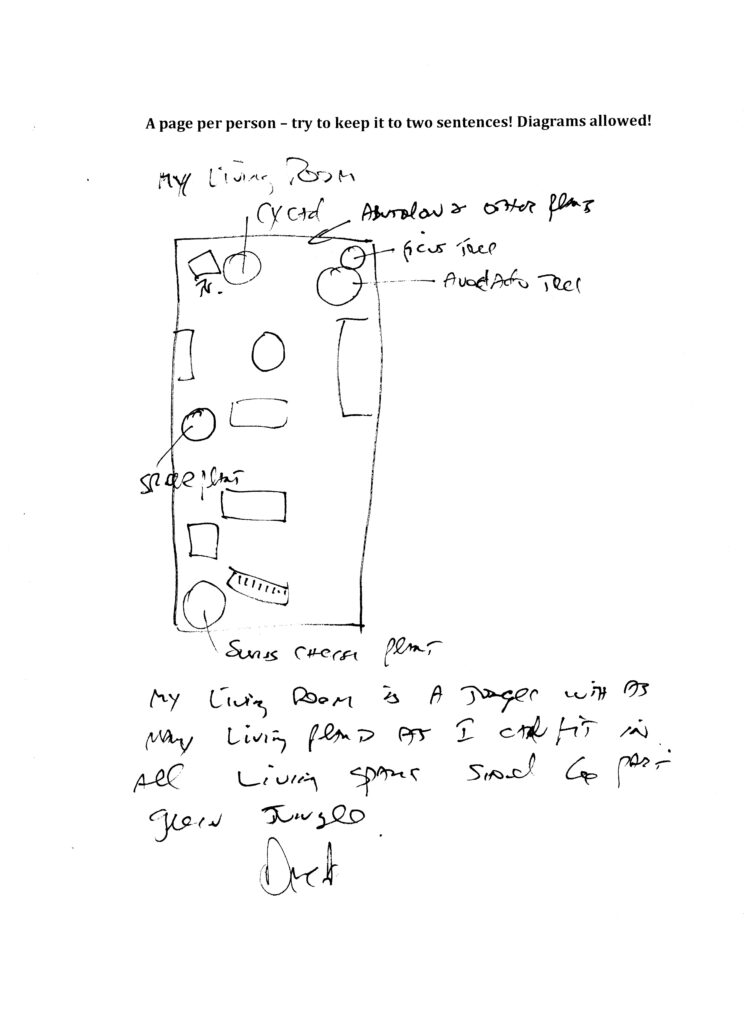 A page per person – try to keep it to two sentences! Diagrams allowed!
My Living Room
Cycad
& other plants
Ficus Tree
Avocado Tree
TV.
plant
Swiss cheese plant
My Living Room is a Jungle with as
many Living plants as I can fit in.
All Living spaces should be part
green Jungle